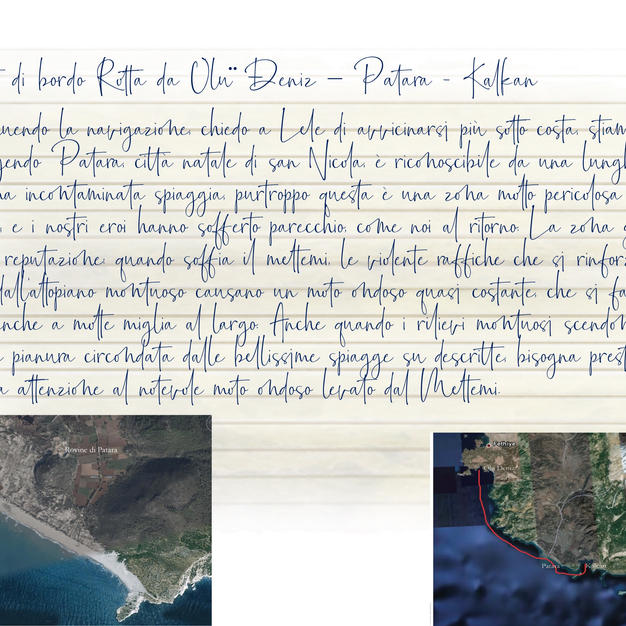 di bordo Rotta da Olu¨ Deniz – Patara - Kalkan
uendo la navigazione, chiedo a Lele di avvicinarsi più sotto costa, stiam
gendo Patara, città natale di san Nicola, è riconoscibile da una lungh
na incontaminata spiaggia, purtroppo questa è una zona molto pericolosa
, e i nostri eroi hanno sofferto parecchio, come noi al ritorno. La zona
reputazione, quando soffia il meltemi, le violente raffiche che si rinforz
dall'altopiano montuoso causano un moto ondoso quasi costante, che si fa
nche a molte miglia al largo. Anche quando i rilievi montuosi scendon
pianura circondata dalle bellissime spiagge su descritte, bisogna prest
a attenzione al notevole moto ondoso levato dal Meltemi.
Rovine di Patara
Fethiye
Olu Deniz
Patara
Kalkan